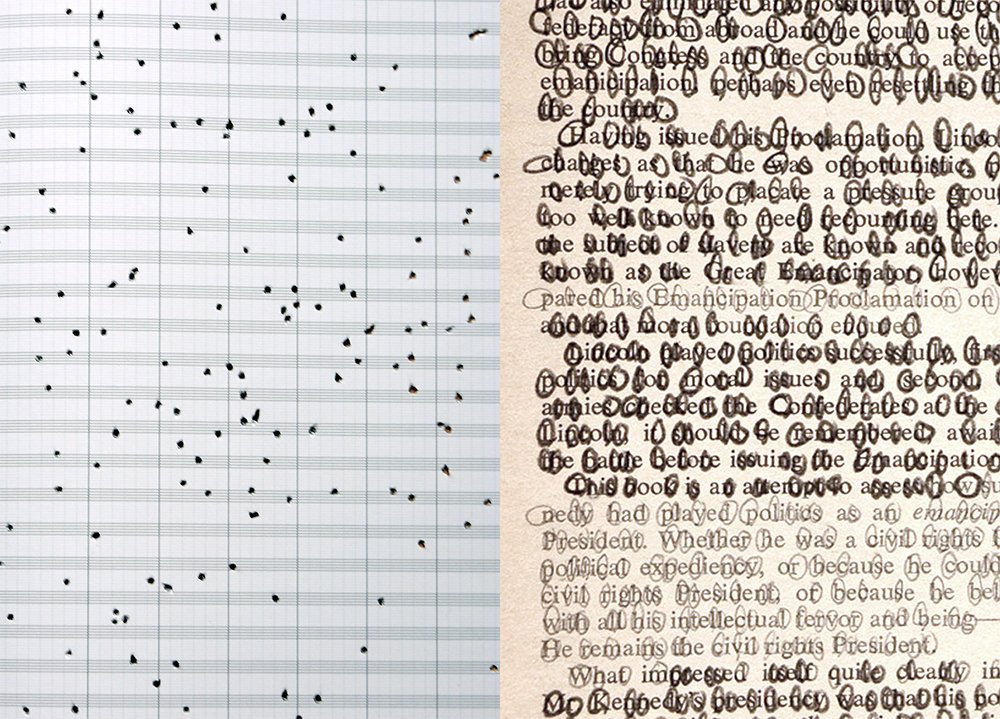 had also eliminated any possibility of reco
federacy from abroad and he could use th
bying Congress and the country to accep
emancipation, perhaps even resettling th
the country.
Having issued his Proclamation, Linco
charges as that he was opportunistic
merely trying to placate a pressure grou
too well known to need recounting here.
the subject of slavery are known and reco
known as the Great Emancipator, howev
pared his Emancipation Proclamation on
and that moral foundation endured.
Lincoln played politics successfully, firs
politics for moral issues and, second,
armies checked the Confederates at the
Lincoln, it should be remembered, awai
the battle before issuing the Emancipation
This book is an attempt to assess how su
nedy had played politics as an emancip
President. Whether he was a civil rights
political expediency, or because he could
civil rights President, or because he bel
with all his intellectual fervor and being—
He remains the civil rights President.
What impressed itself quite clearly in
Mr. Kennedy's presidency was that his po